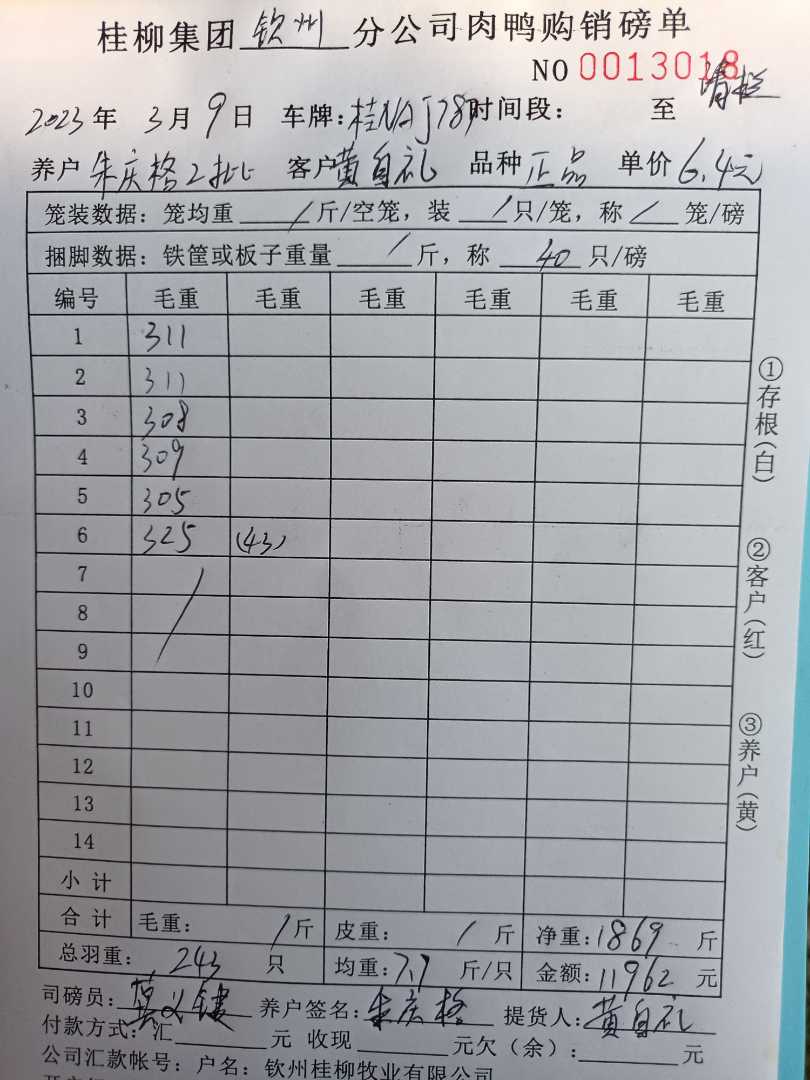 桂柳集团 钦州 分公司肉鸭购销磅单
NO 0013018
清栏
2023年 3月9日 车牌:桂NAJ787 时间段: 至
养户 朱庆格2批 客户 黄自礼 品种 正品 单价 6.4元
笼装数据:笼均重 / 斤/空笼,装 / 只/笼,称 / 笼/磅
捆脚数据:铁筐或板子重量 / 斤,称 40 只/磅
编号 毛重 毛重 毛重 毛重 毛重 毛重
1 311
2 311
3 308
4 309
5 305
6 325 (43)
7
8
9
10
11
12
13
14
小计
合计 毛重: / 斤 皮重: / 斤 净重:1869 斤
总羽重: 243 只 均重:7.7 斤/只 金额:11962 元
司磅员: 莫义 养户签名:朱庆格 提货人:黄自礼
付款方式:汇 元 收现 元欠(余): 元
公司汇款帐号:户名:钦州桂柳牧业有限公司
①存根(白)
②客户(红)
③养户(黄)